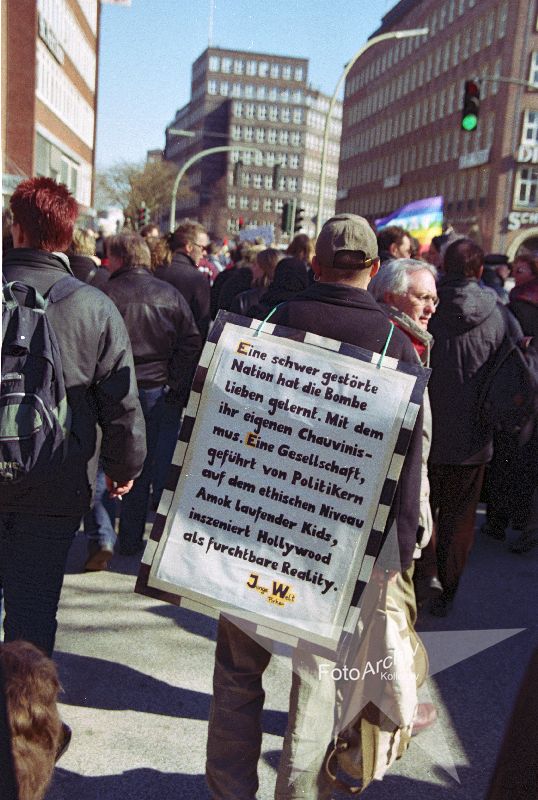 Eine schwer gestörte
Nation hat die Bombe
lieben gelernt. Mit dem
ihr eigenen Chauvinis-
mus. Eine Gesellschaft,
geführt von Politikern
auf dem ethischen Niveau
Amok laufender Kids,
inszeniert Hollywood
als furchtbare Reality.
Junge Welt
FotoArchiv